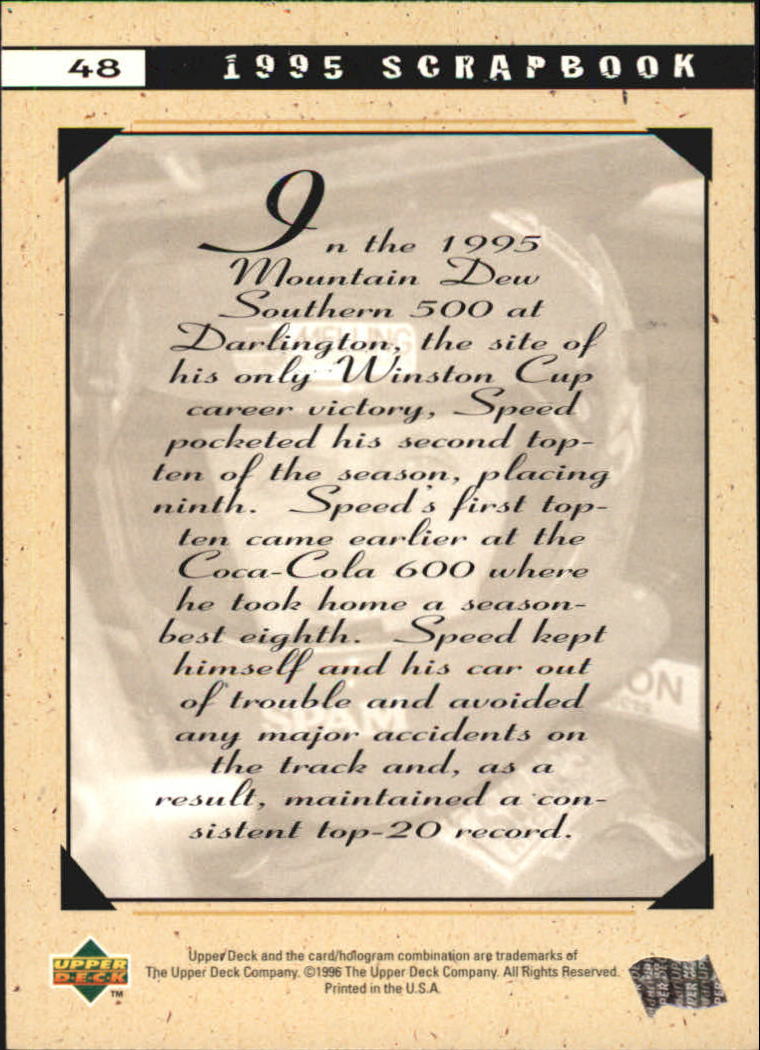 48 1995 SCRAPBOOK
In the 1995
Mountain Dew
Southern 500 at
Darlington, the site of
his only Winston Cup
career victory, Speed
pocketed his second top-
ten of the season, placing
ninth. Speed's first top-
ten came earlier at the
Coca-Cola 600 where
he took home a season-
best eighth. Speed kept
himself and his car out
of trouble and avoided
any major accidents on
the track and, as a
result, maintained a con-
sistent top-20 record.
MELLING
SPAM
ON
UPPER
D·E·C·K
TM
Upper Deck and the card/hologram combination are trademarks of
The Upper Deck Company. ©1996 The Upper Deck Company. All Rights Reserved.
Printed in the U.S.A.